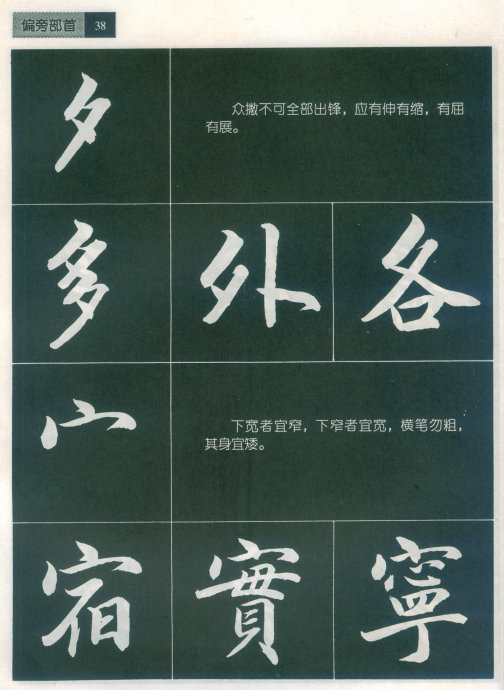 偏旁部首 38
夕
众撇不可全部出锋，应有伸有缩，有屈
有展。
多 外 各
宀
下宽者宜窄，下窄者宜宽，横笔勿粗，
其身宜矮。
宿 實 寧